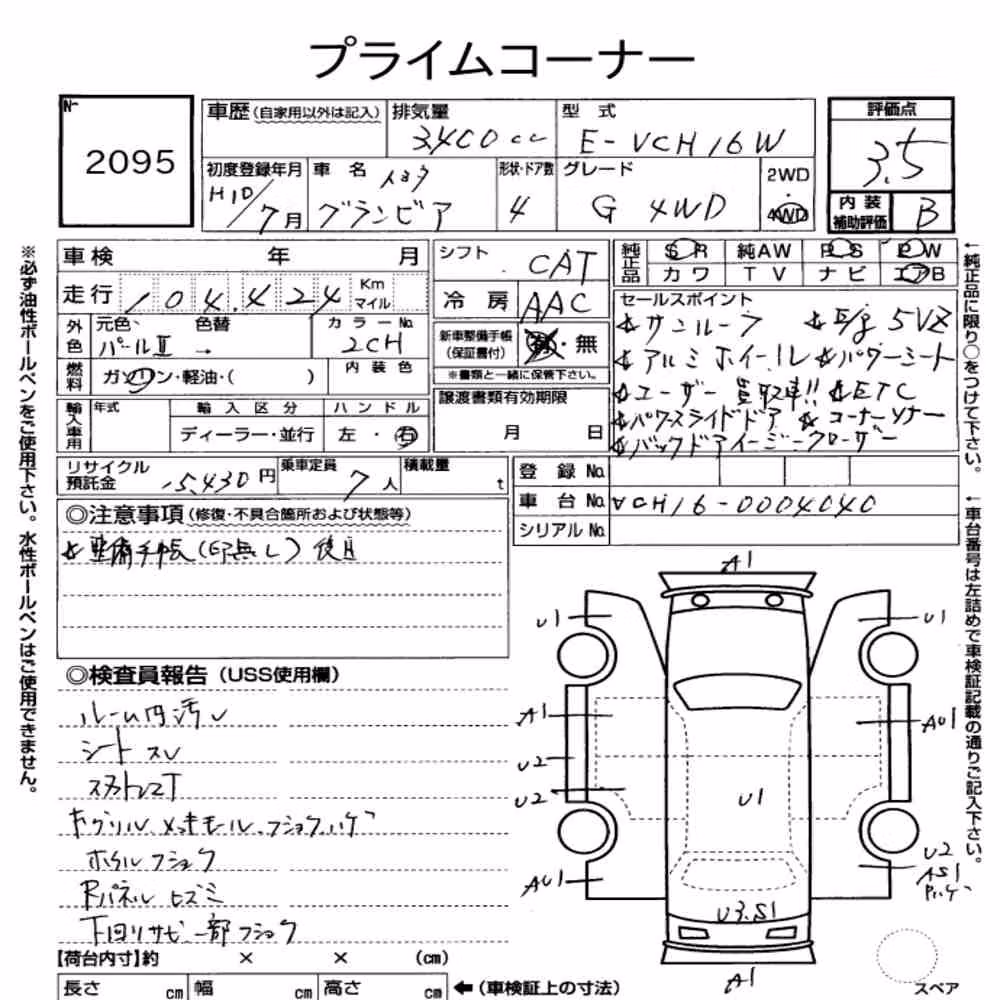 プライムコーナー
№
2095
車歴(自家用以外は記入)
排気量
3400cc
型 式
E-VCH16W
評価点
3.5
初度登録年月
H10/7月
車 名
トヨタ
グランビア
形状・ドア数
4
グレード
G 4WD
2WD
・
4WD
内 装
補助評価
B
車検 年 月
走行 104,424 Km
マイル
シフト
CAT
冷 房 AAC
純正品
SR 純AW PS PW
カワ TV ナビ エアB
外色
元色、 色替
パールII →
カラーNo.
2CH
燃料
ガソリン・軽油・( )
内 装 色
新車整備手帳
(保証書付)
有・無
※書類と一緒に保管下さい。
輸入車用
年式
輸 入 区 分
ディーラー・並行
ハ ン ド ル
左 ・ 右
譲渡書類有効期限
月 日
セールスポイント
☆サンルーフ ☆E/g 5VZ
☆アルミホイール ☆パワーシート
☆ユーザー買取車!! ☆ETC
☆パワースライドドア ☆コーナーソナー
☆バックドアイージークローザー
リサイクル
預託金
15,430円
乗車定員
7人
積載量
t
登 録 No.
車 台 No. VCH16-0004040
シリアル No.
◎注意事項(修復・不具合箇所および状態等)
☆整備手帳(印無し)使用
◎検査員報告(USS使用欄)
ルーム内汚レ
シートスレ
Fグリルメッキモールフショクハゲ
ホイルフショク
Rパネルヒズミ
下回リサビ一部フショク
【荷台内寸】約 × × (cm)
長さ cm 幅 cm 高さ cm
←(車検証上の寸法)
A1
U1
U1
A1
AU1
U2
U2
U1
AU1
U2
AS1
Pハゲ
U3.S1
A1
スペア
※必ず油性ボールペンをご使用下さい。水性ボールペンはご使用できません。
←純正品に限り○をつけて下さい。
←車台番号は左詰めで車検証記載の通りご記入下さい。